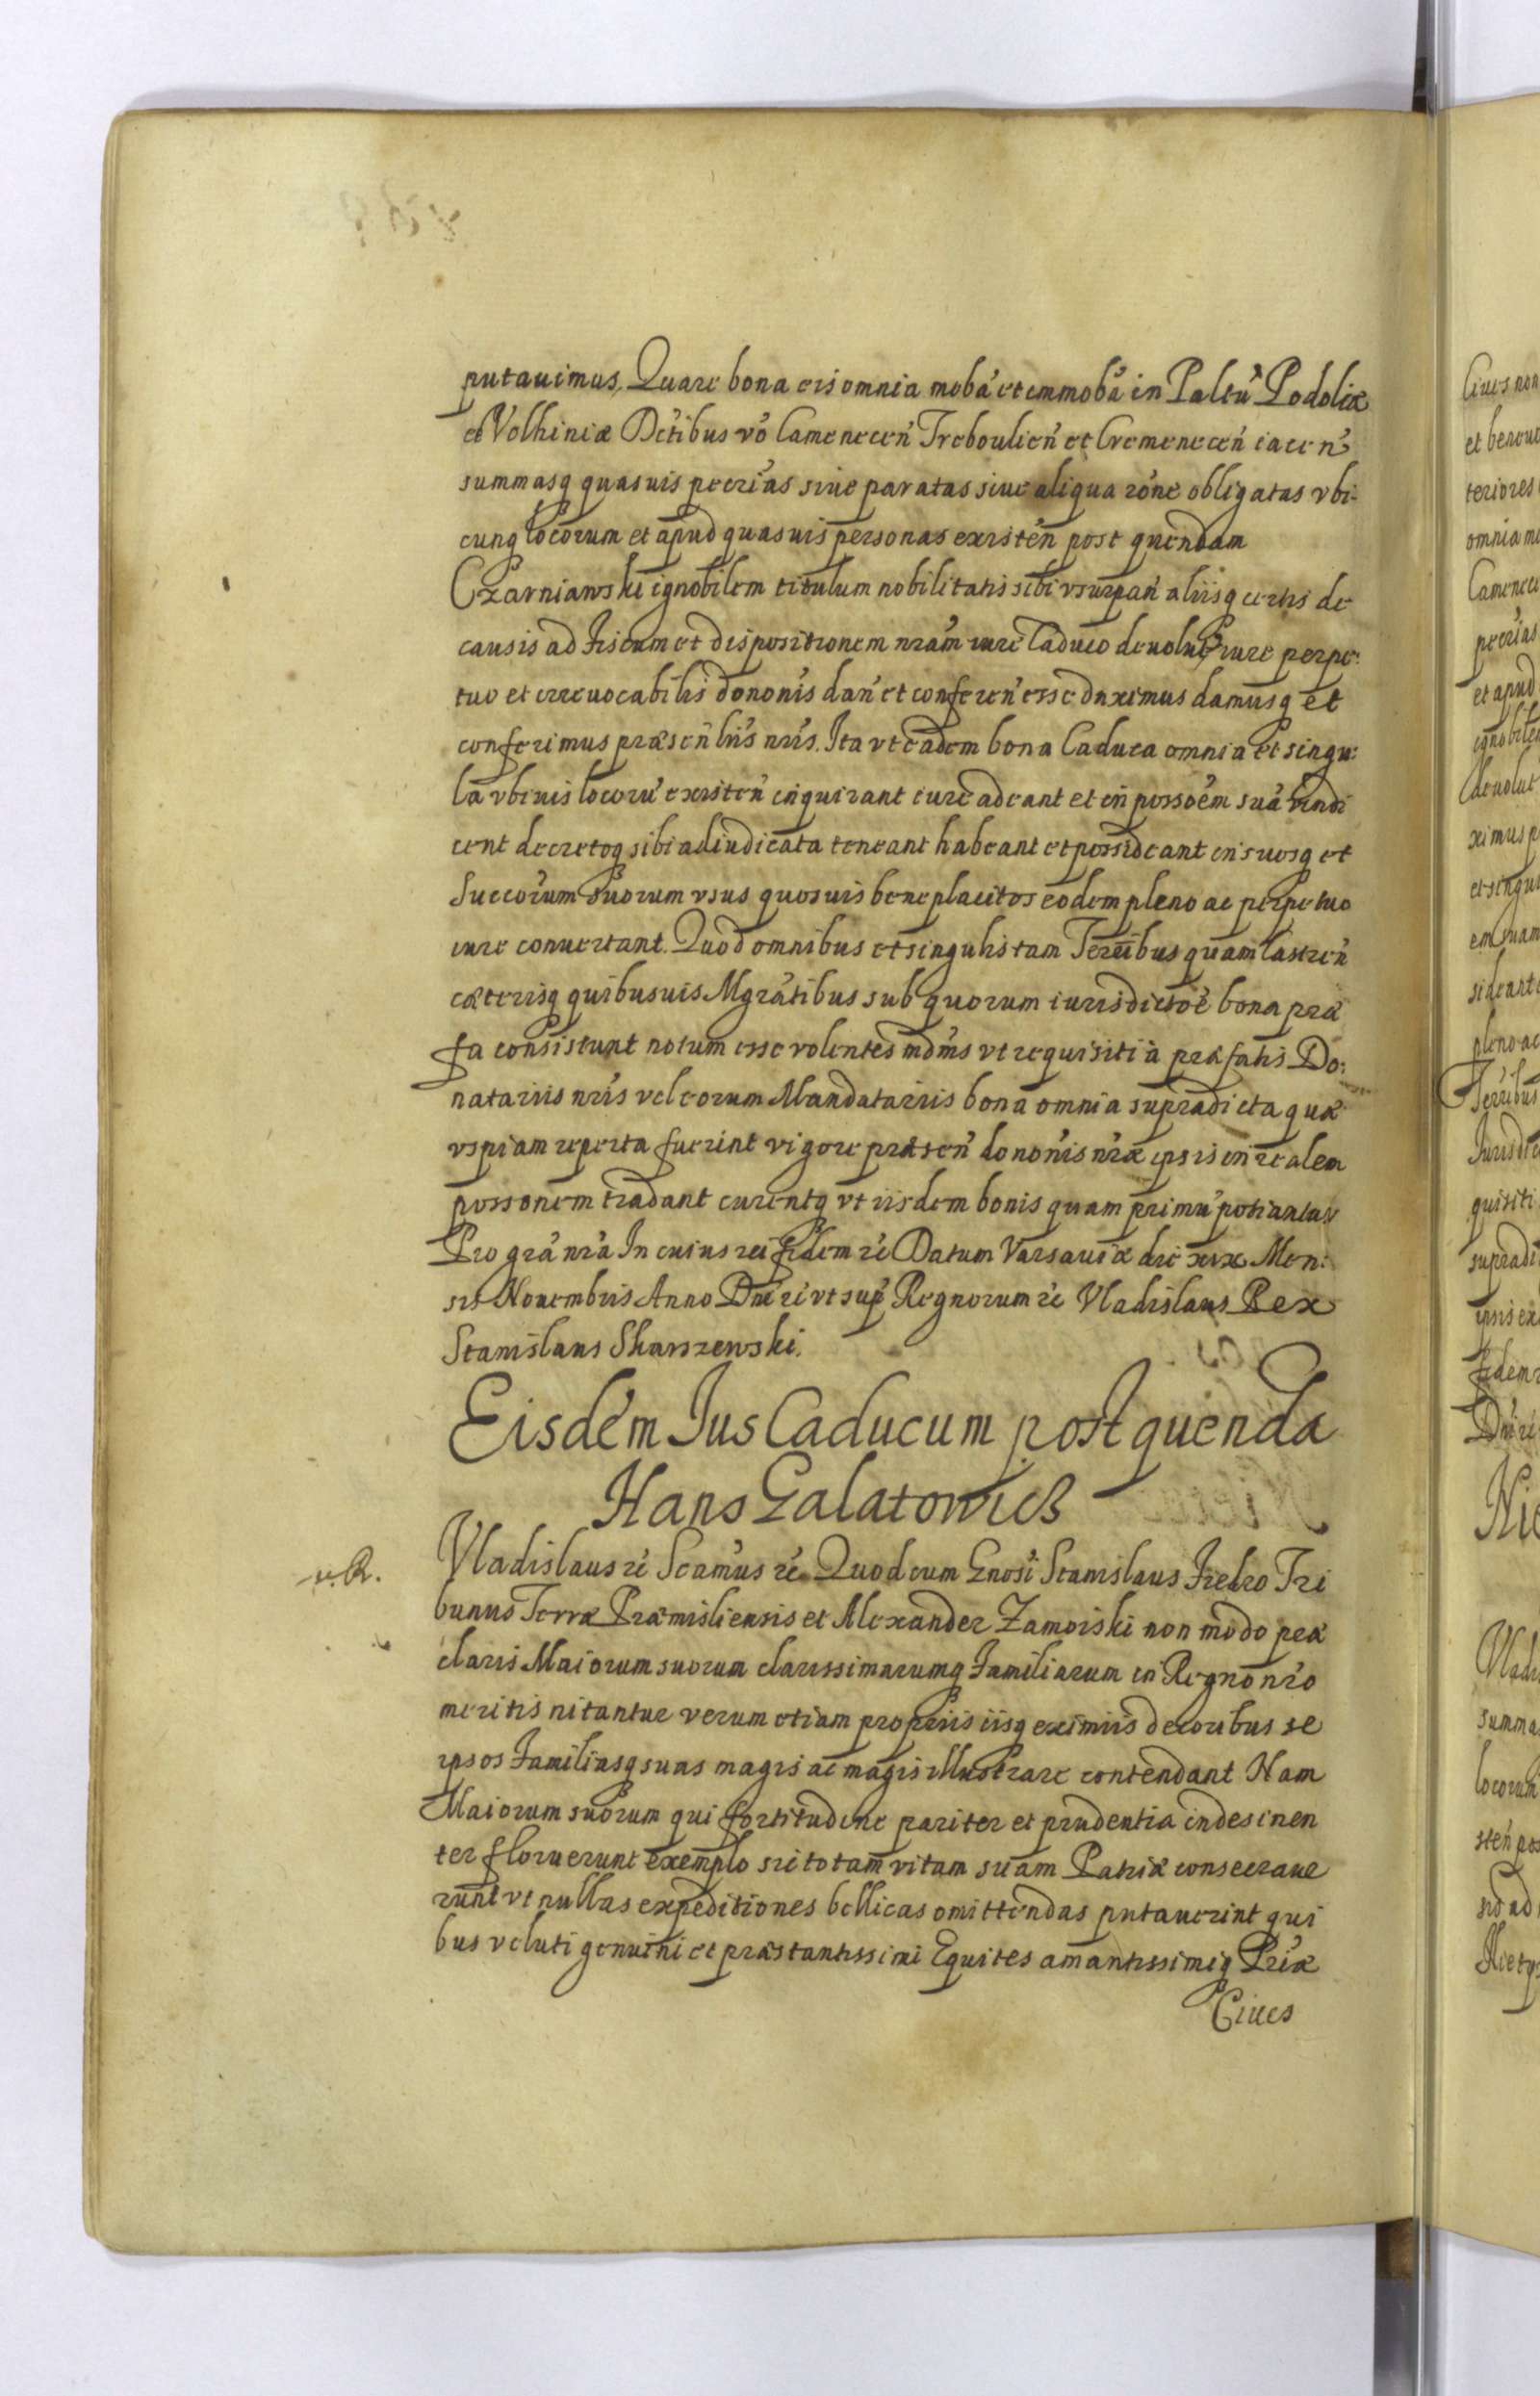 putauimus, Quare bona eis omnia mobã et immobã in Paltũ Podoliæ
et Volhiniæ Dctibus vó Camenecen̄ Treboulien̄ et Cremenecen̄ iacen̄
summasq quasuis pecrias siue paratas siue aliqua róne obligatas vbi:
cunq locorum et apud quasuis personas existen̄ post quendam
Czarniawski ignobilem titulum nobilitatis sibi vsurpan̄ aliisq certis de
causis ad Fiscum et dispositionem nrãm iure Caduco deuolu iure perpe:
tuo et irreuocabilis dononis dan̄ et conferen̄ esse duximus damusq et
conferimus præsen̄ lris nris. Ita vt eadem bona Caduca omnia et singu:
la vbiuis locorũ existen̄ inquirant iure adeant et in possoẽm suã vindi
cent decretoq sibi adiudicata teneant habeant et possideant in suosq et
Succorum suorum vsus quosuis beneplacitos eodem pleno ac perpetuo
iure conuertant. Quod omnibus et singulis tam Terribus quam Castren̄
cæterisq quibusuis Mgratibus sub quorum iurisdictoẽ bona præ
fa consistunt notum esse volentes mdm̃s vt requisiti à præfatis Do:
natariis nris vel eorum Mandatariis bona omnia supradicta quæ
vspiam reperta fuerint vigore præsen̄ dononis nræ ipsis in realem
possonem tradant curentq vt iisdem bonis quam primũ potiantur
Pro grã nrã In cuius rei fidem rć Datum Varsauiæ die xix Men:
sis Nouembris Anno Dni rć vt sup Regnorum rć Vladislaus Rex
Stanislaus Skarszewski.
Eisdem Ius Caducum post quenda
Hans Galatowicz
v. R.
Vladislaus rć Scamus rć Quod cum Gnosi Stanislaus Fredro Tri
bunus Terræ Præmisliensis et Alexander Zamoiski non modo præ
claris Maiorum suorum clarissimarumq Familiarum in Regno nro
meritis nitantur verum etiam propriis iisq eximiis decoribus se
ipsos Familiasq suas magis ac magis illustrare contendant Nam
Maiorum suorum qui fortitudine pariter et prudentia indesinen
ter floruerunt exemplo sic totam vitam suam Patriæ consecraue
runt vt nullas expeditiones bellicas omittendas putauerint qui
bus veluti genuini et præstantissimi Equites amantissimiq Priæ
Ciues